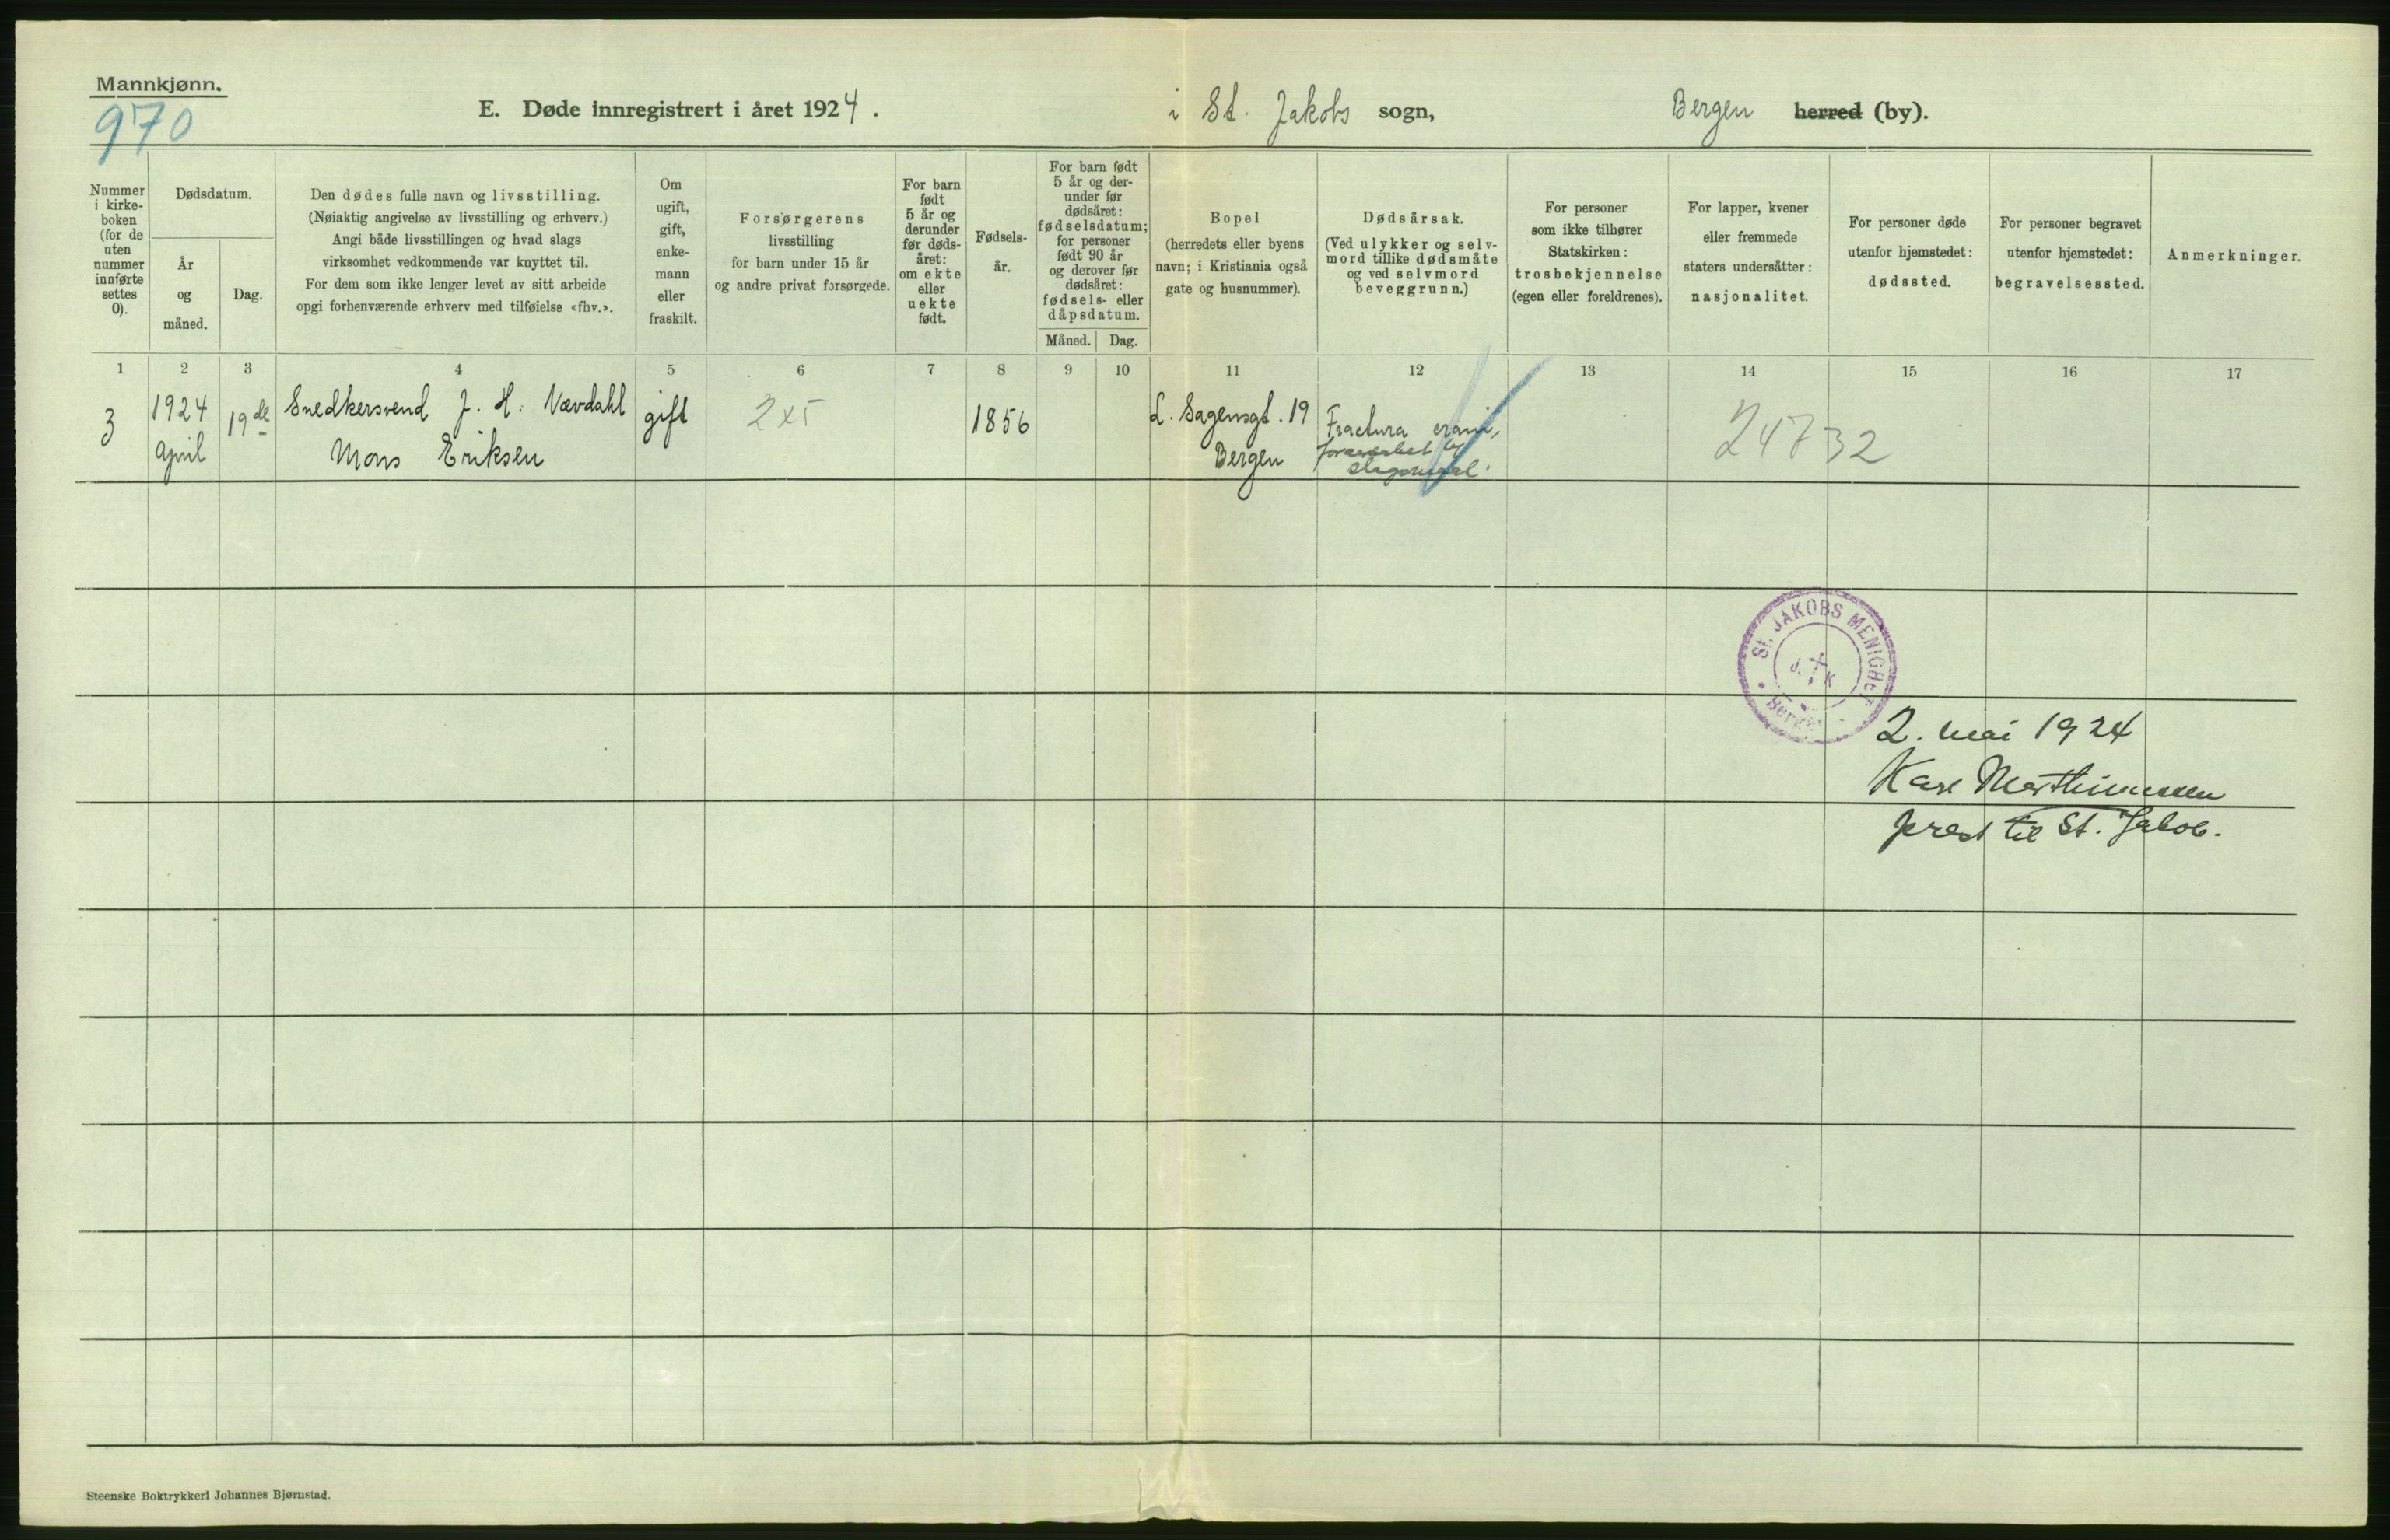 Mannkjønn.
970
E. Døde innregistrert i året 1924.
i St. Jakobs sogn,
Bergen herred (by).
Nummer
i kirke-
boken
(for de
uten
nummer
innførte
settes
0).
Dødsdatum.
År
og
måned.
Dag.
Den dødes fulle navn og livsstilling.
(Nøiaktig angivelse av livsstilling og erhverv.)
Angi både livsstillingen og hvad slags
virksomhet vedkommende var knyttet til.
For dem som ikke lenger levet av sitt arbeide
opgi forhenværende erhverv med tilføielse «fhv.».
Om
ugift,
gift,
enke-
mann
eller
fraskilt.
Forsørgerens
livsstilling
for barn under 15 år
og andre privat forsørgede.
For barn
født
5 år og
derunder
før døds-
året:
om ekte
eller
uekte
født.
Fødsels-
år.
For barn født
5 år og der-
under før
dødsåret:
fødselsdatum;
for personer
født 90 år
og derover før
dødsåret:
fødsels- eller
dåpsdatum.
Måned. Dag.
Bopel
(herredets eller byens
navn; i Kristiania også
gate og husnummer).
Dødsårsak.
(Ved ulykker og selv-
mord tillike dødsmåte
og ved selvmord
beveggrunn.)
For personer
som ikke tilhører
Statskirken:
trosbekjennelse
(egen eller foreldrenes).
For lapper, kvener
eller fremmede
staters undersåtter:
nasjonalitet.
For personer døde
utenfor hjemstedet:
dødssted.
For personer begravet
utenfor hjemstedet:
begravelsessted.
Anmerkninger.
1 2 3 4 5 6 7 8 9 10 11 12 13 14 15 16 17
3
1924
April
19de
Snedkersvend J. H. Vævdahl
Mons Eriksen
gift
2x5
1856
L. Sagensgt. 19
Bergen
Fractura cranii,
24732
St. JAKOBS MENIGHET
J. K
Bergen
2. mai 1924
Karl Marthinussen
prest til St. Jakob.
Steenske Boktrykkeri Johannes Bjørnstad.